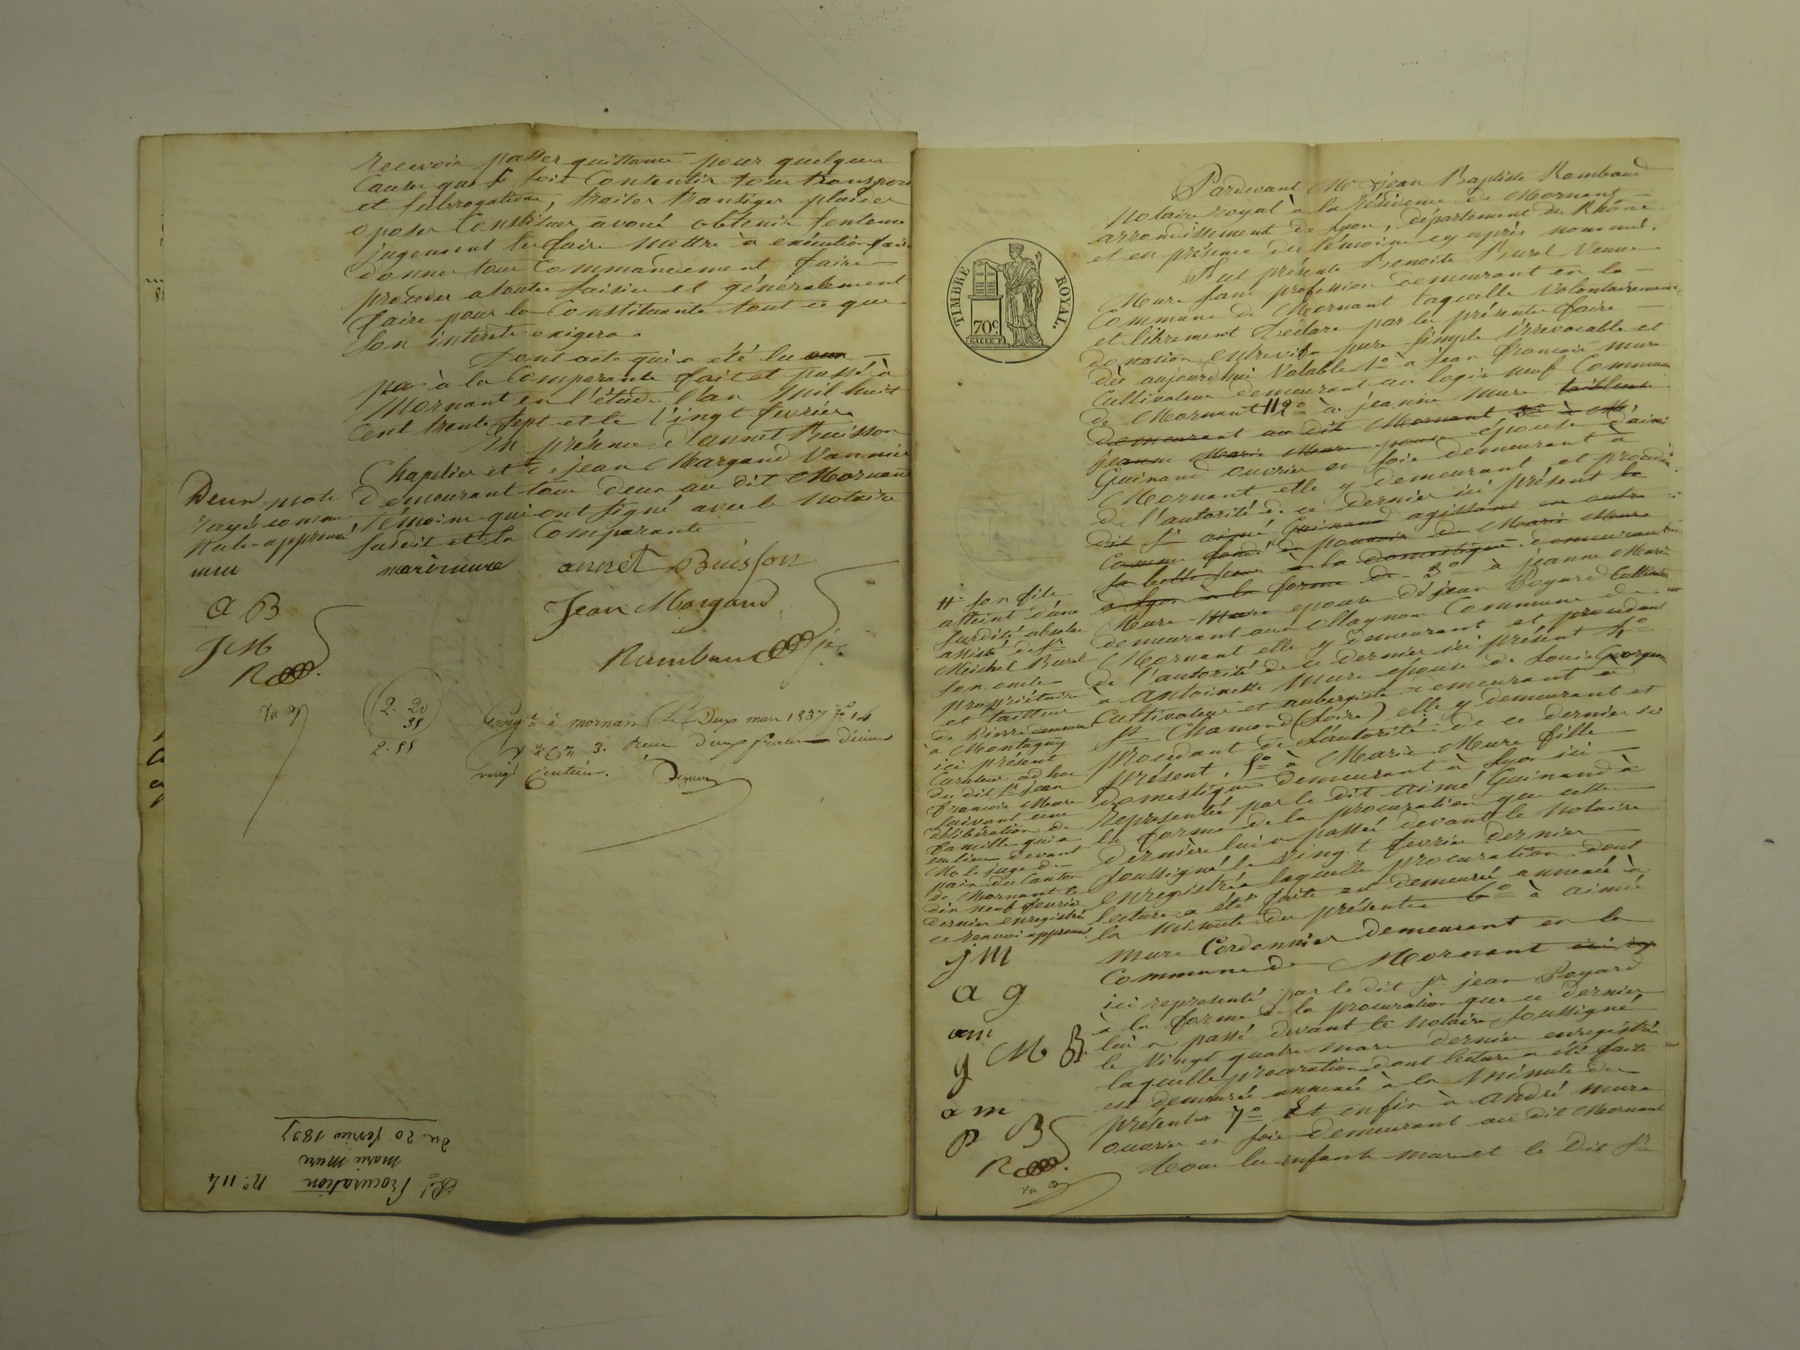 recevoir passer quittance pour quelque
Cause que se soit Consentir tour transport
et subrogation, traiter transiger plaider
oposer Constituer avoué obtenir sentence
jugement les faire mettre à exécution faire
donner tour Commandement faire
proceder a toutes saisies et généralement
faire pour la Constituante tout ce que
son interêt exigera.
Dont acte qui a été lu
à la Comparante fait et passé à
Mornant en l'étude l'an Mil huit
Cent trente sept et le Vingt fevrier
En présence d'annet Buisson
Chapelier et de jean Margand Vannier
demeurant tour deux au dit Mornant
témoins qui ont signé avec le notaire
susdit et la Comparante
Deux mots
rayés comme
nuls approuvé
mm
A B
J M
R
marie mure
annet Buisson
Jean Margand
Rambaud
2. 20
2. 55
à mornant Le Deux mars 1837 f° 14
3. reçu Deux francs décime
vingt Centimes.
N° 114
Procuration
marie Mure
du 20 fevrier 1837
TIMBRE ROYAL.
70c
Pardevant Me Jean Baptiste Rambaud
Notaire royal à la résidence de Mornant
arrondissement de Lyon, département du Rhône
et en présence des témoins cy après nommés.
Fut présente Benoite Burel Veuve
Mure sans profession demeurant en la
Commune de Mornant laquelle Volontairement
et librement Déclare par les présentes faire
donation entrevifs pure simple irrevocable et
dès aujourd'hui Valable 1° à jean françois mure
Cultivateur demeurant au logis neuf Commune
de Mornant # 2° à jeanne mure
demeurant au dit Mornant 3° à
jeanne Marie Mure épouse d'aimé
Guinand ouvrier en soie demeurant à
Mornant elle y demeurant et procédant
de l'autorité de ce dernier ici présent le
dit Sr aimé Guinand agissant en outre
Comme fondé de pouvoir de Marie Mure
sa belle soeur domestique demeurant
à Lyon à la forme de 3° à jeanne Marie
Mure epouse de jean Poyard Cultivateur
demeurant au Magnon Commune de
Mornant elle y demeurant et procédant
de l'autorité de ce dernier ici présent 4°
à antoinette Mure epouse de Louis
Cultivateur et aubergiste demeurant à
St Chamond (Loire) elle y demeurant et
procédant de l'autorité de ce dernier ici
présent. 5° à Marie Mure fille
domestique demeurant à Lyon ici
Representée par le dit aimé Guinand à
la forme de la procuration que cette
dernière lui a passée devant le Notaire
soussigné le Vingt fevrier dernier
enregistrée laquelle procuration dont
lecture a été faite est demeurée annexée à
la Minute des présentes 6° à aimé
mure Cordonnier demeurant en la
Commune de Mornant
ici representé par le dit Sr jean Poyard
à la forme de la procuration que ce dernier
lui a passé devant le Notaire soussigné
le Vingt quatre mars dernier enregistrée
laquelle procuration dont lecture a été faite
est demeurée annexée à la Minute des
présentes 7° Et enfin à André mure
ouvrier en soie demeurant au dit Mornant
Tour les enfants mure et le dit Sr
# Son fils
atteint d'une
surdité absolue
assisté de Sr
Michel Burel
son oncle
propriétaire
et tailleur
de Pierre demeurant
à Montagny
ici présent
Curateur ad hoc
du dit Sr jean
françois Mure
suivant une
délibération de
famille qui a
eu lieu devant
Mr le juge de
paix du Canton
de Mornant le
dix neuf fevrier
dernier enregistré
ce renvoi approuvé.
j M
a g
am
g M B
a m
P B
R